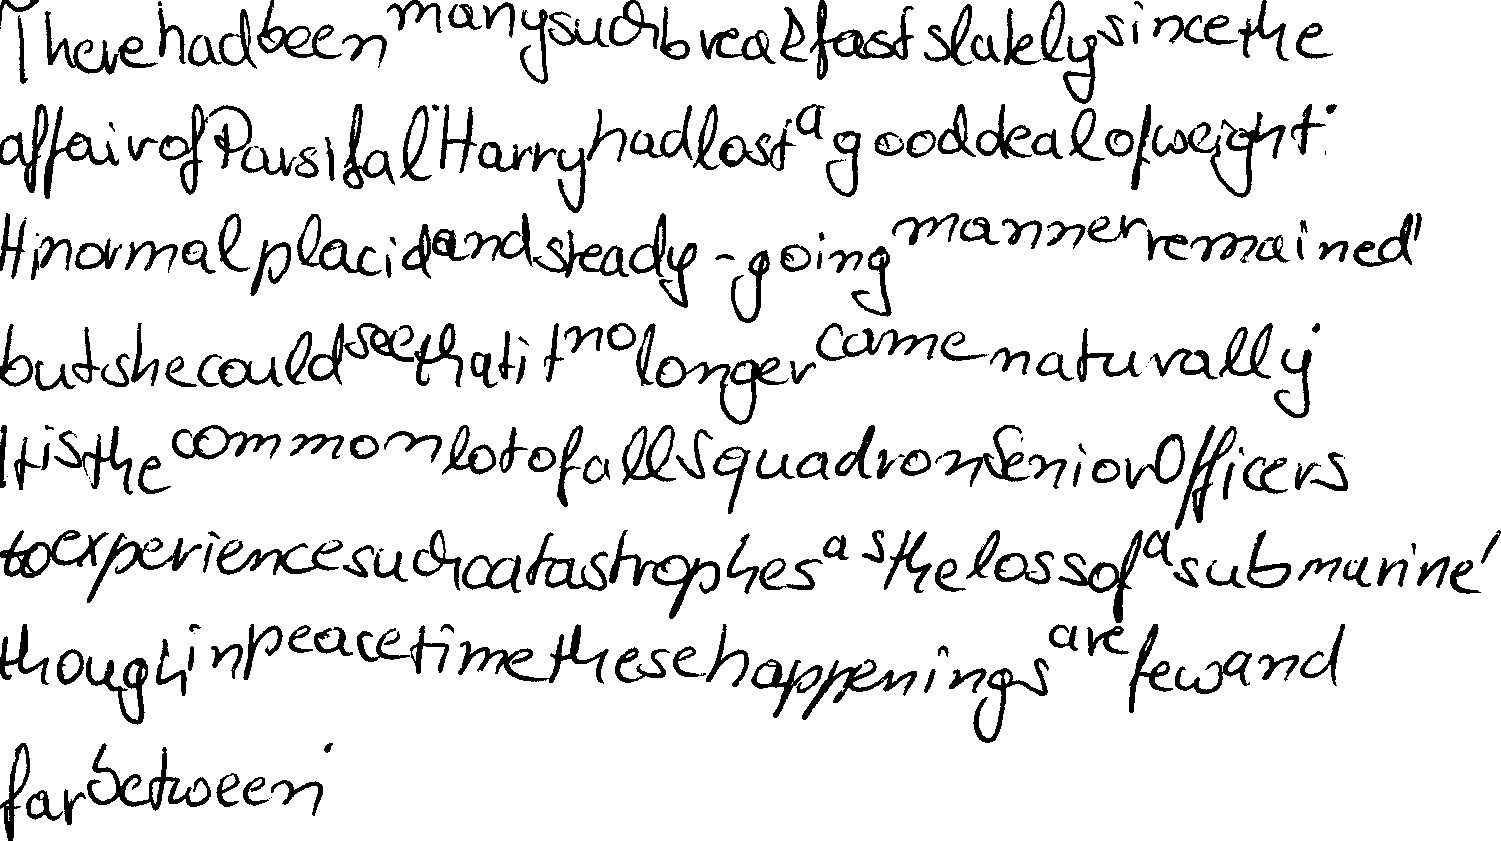 There had been many such breakfasts lately since the
affair of Parsifal. Harry had lost a good deal of weight.
Hi normal placid and steady-going manner remained,
but she could see that it no longer came naturally.
It is the common lot of all Squadron Senior Officers
to experience such catastrophes as the loss of a submarine,
though in peace time these happenings are few and
far between.